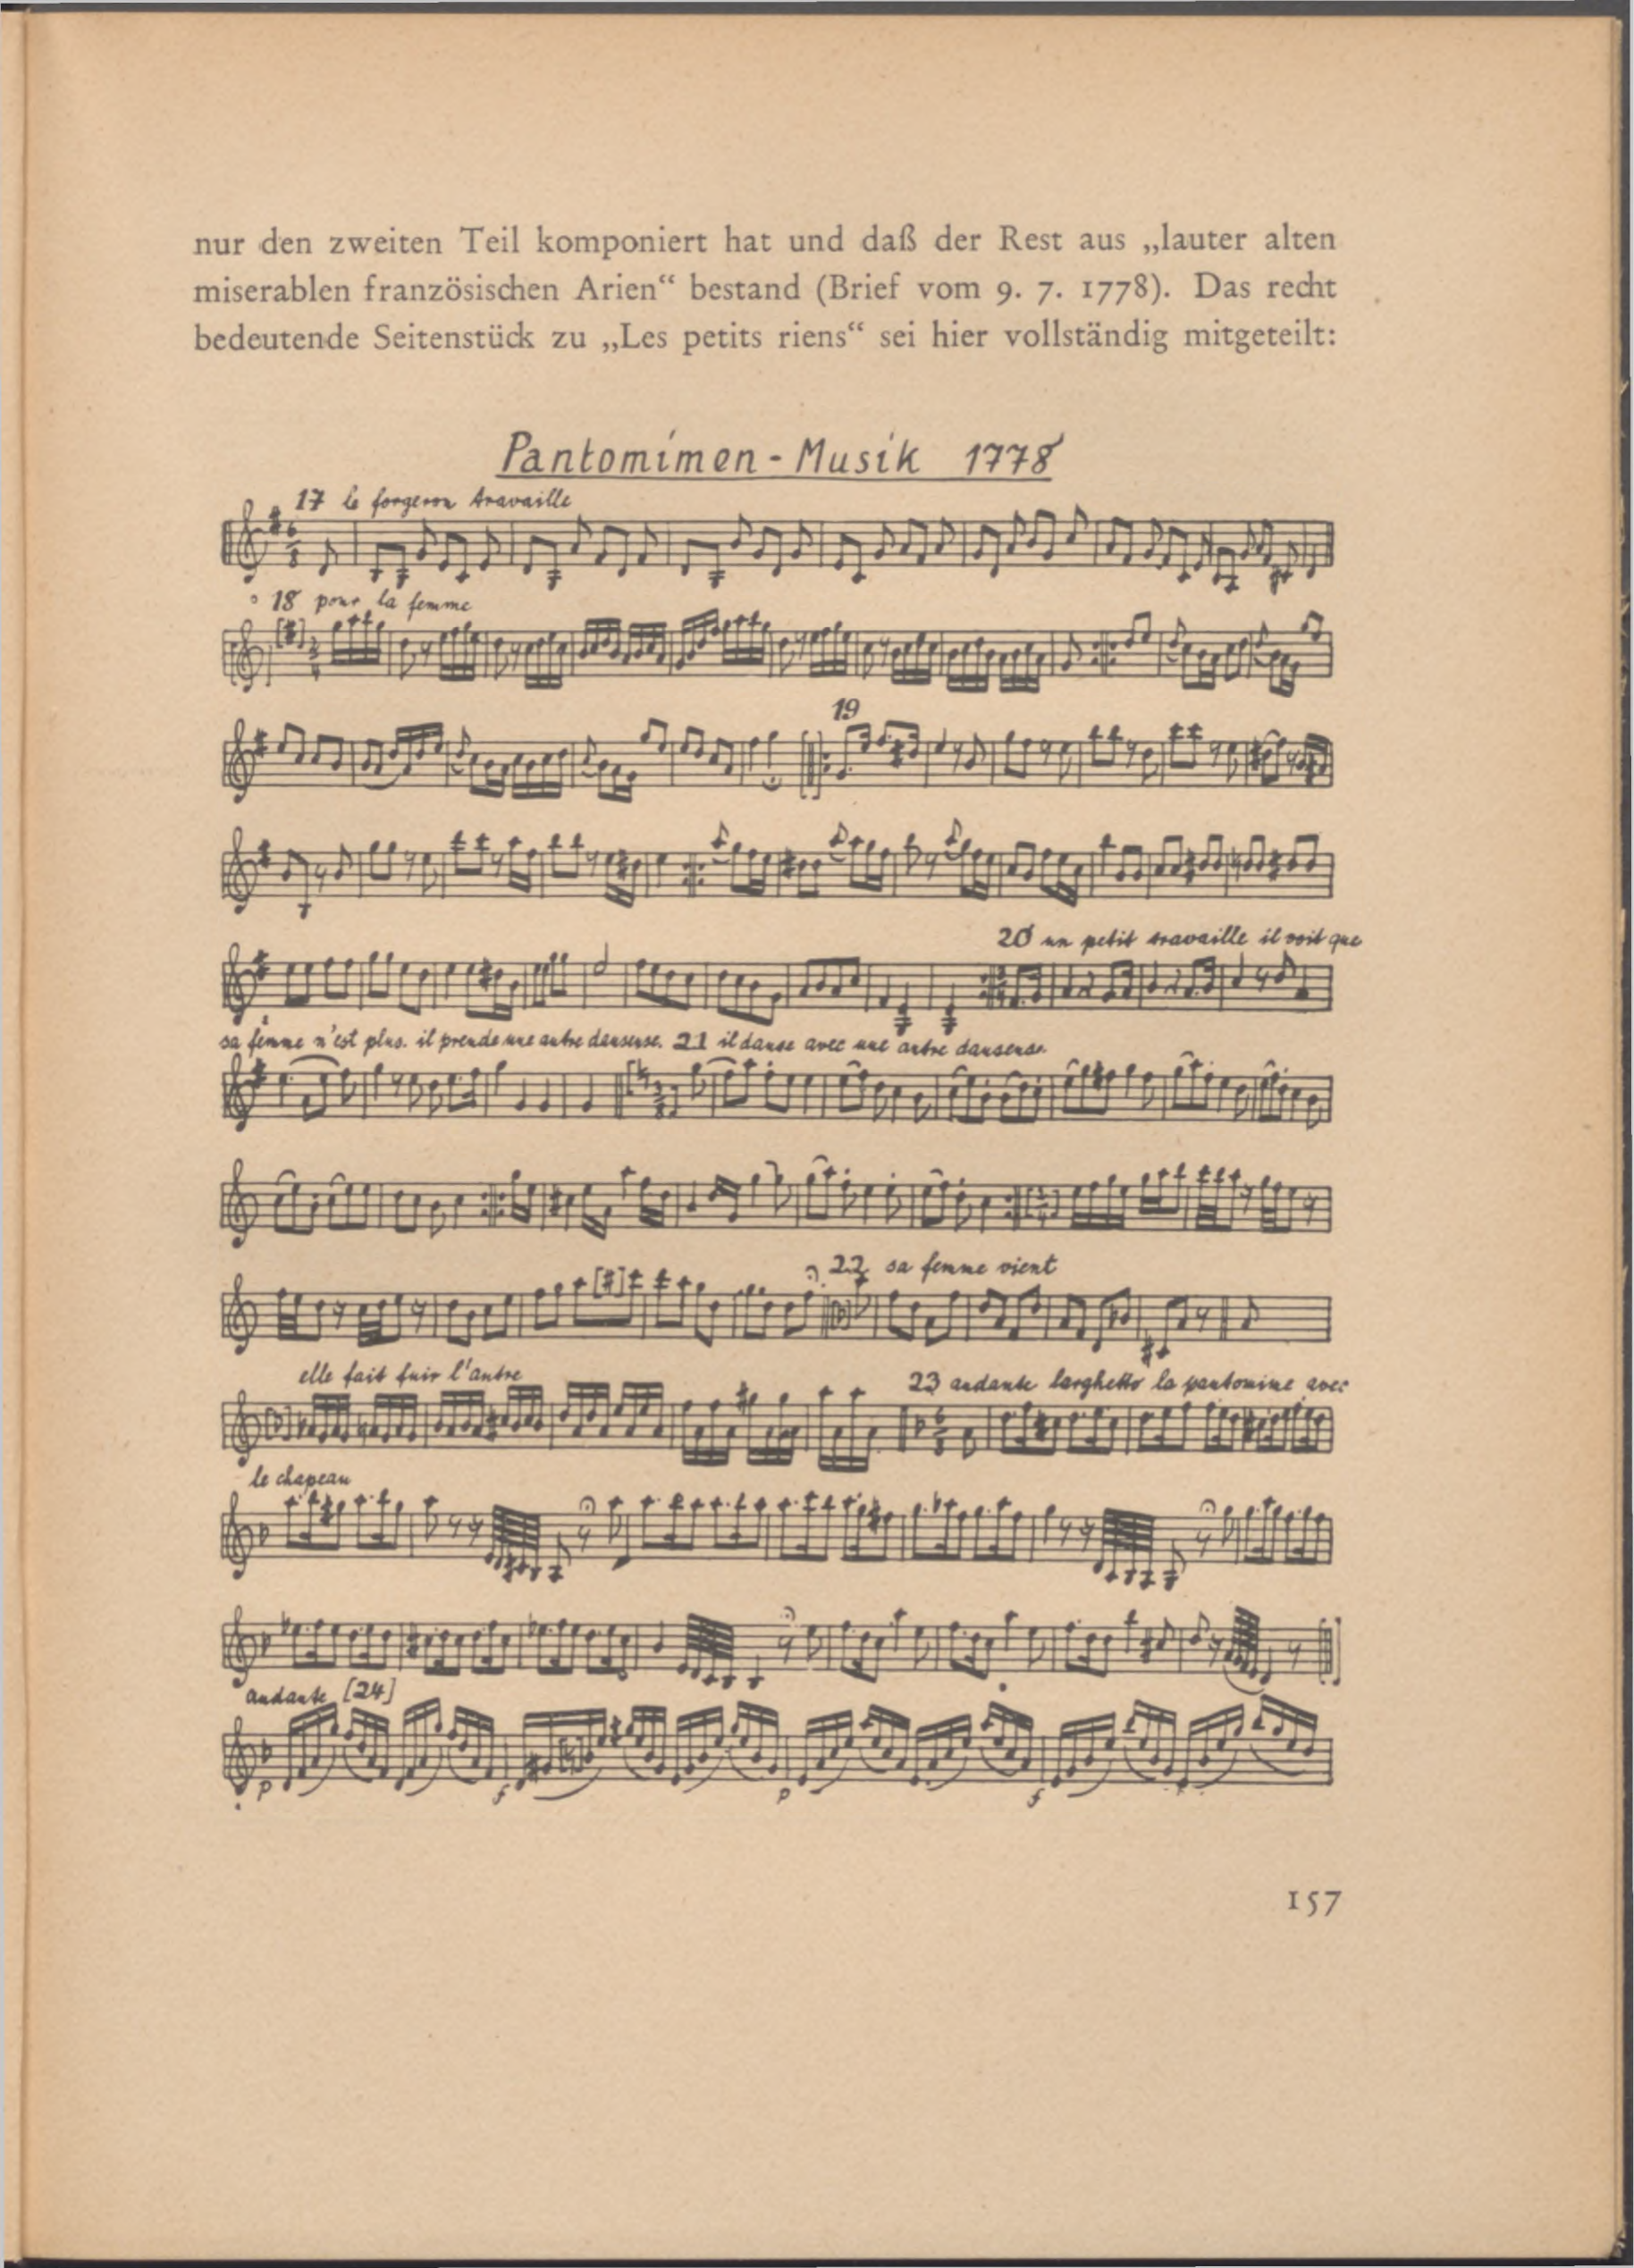 nur den zweiten Teil komponiert hat und daß der Rest aus „lauter alten
miserablen französischen Arien“ bestand (Brief vom 9. 7. 1778). Das recht
bedeutende Seitenstück zu „Les petits riens“ sei hier vollständig mitgeteilt:
Pantomimen - Musik 1778
17 le forgeron travaille
18 pour la femme
19
20 un petit travaille il voit que
sa femme n'est plus. il prende une autre danseuse. 21 il danse avec une autre danseuse.
22 sa femme vient
elle fait fuir l'autre
23 andante larghetto la pantomime avec
le chapeau
andante [24]
p f p f
157